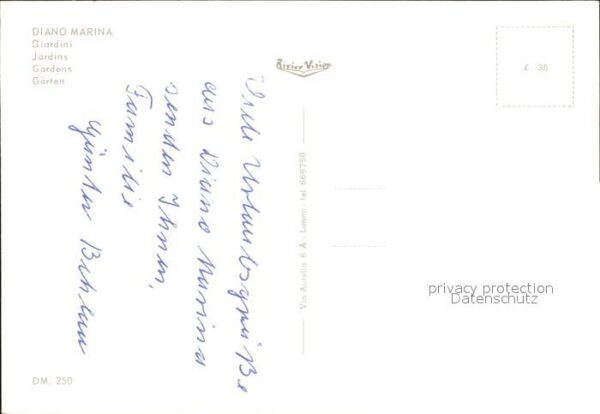 DIANO MARINA
Giardini
Jardins
Gardens
Gärten
Rivier Vision
£. 35
Viele Urlaubsgrüße
aus Diano Marina
senden Ihnen,
Familie
Günter
Via Aurelia, 6 A - Loano - tel. 669759
privacy protection
Datenschutz
DM. 250